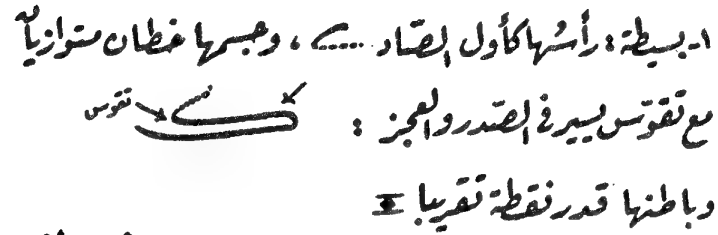 ١- بسيطة: رأسُها كأول الصّاد ، وجسمها خطان متوازيان
مع تقوّس يسير في الصّدر والعجز :
تقوس
وباطنها قدر نقطة تقريبا